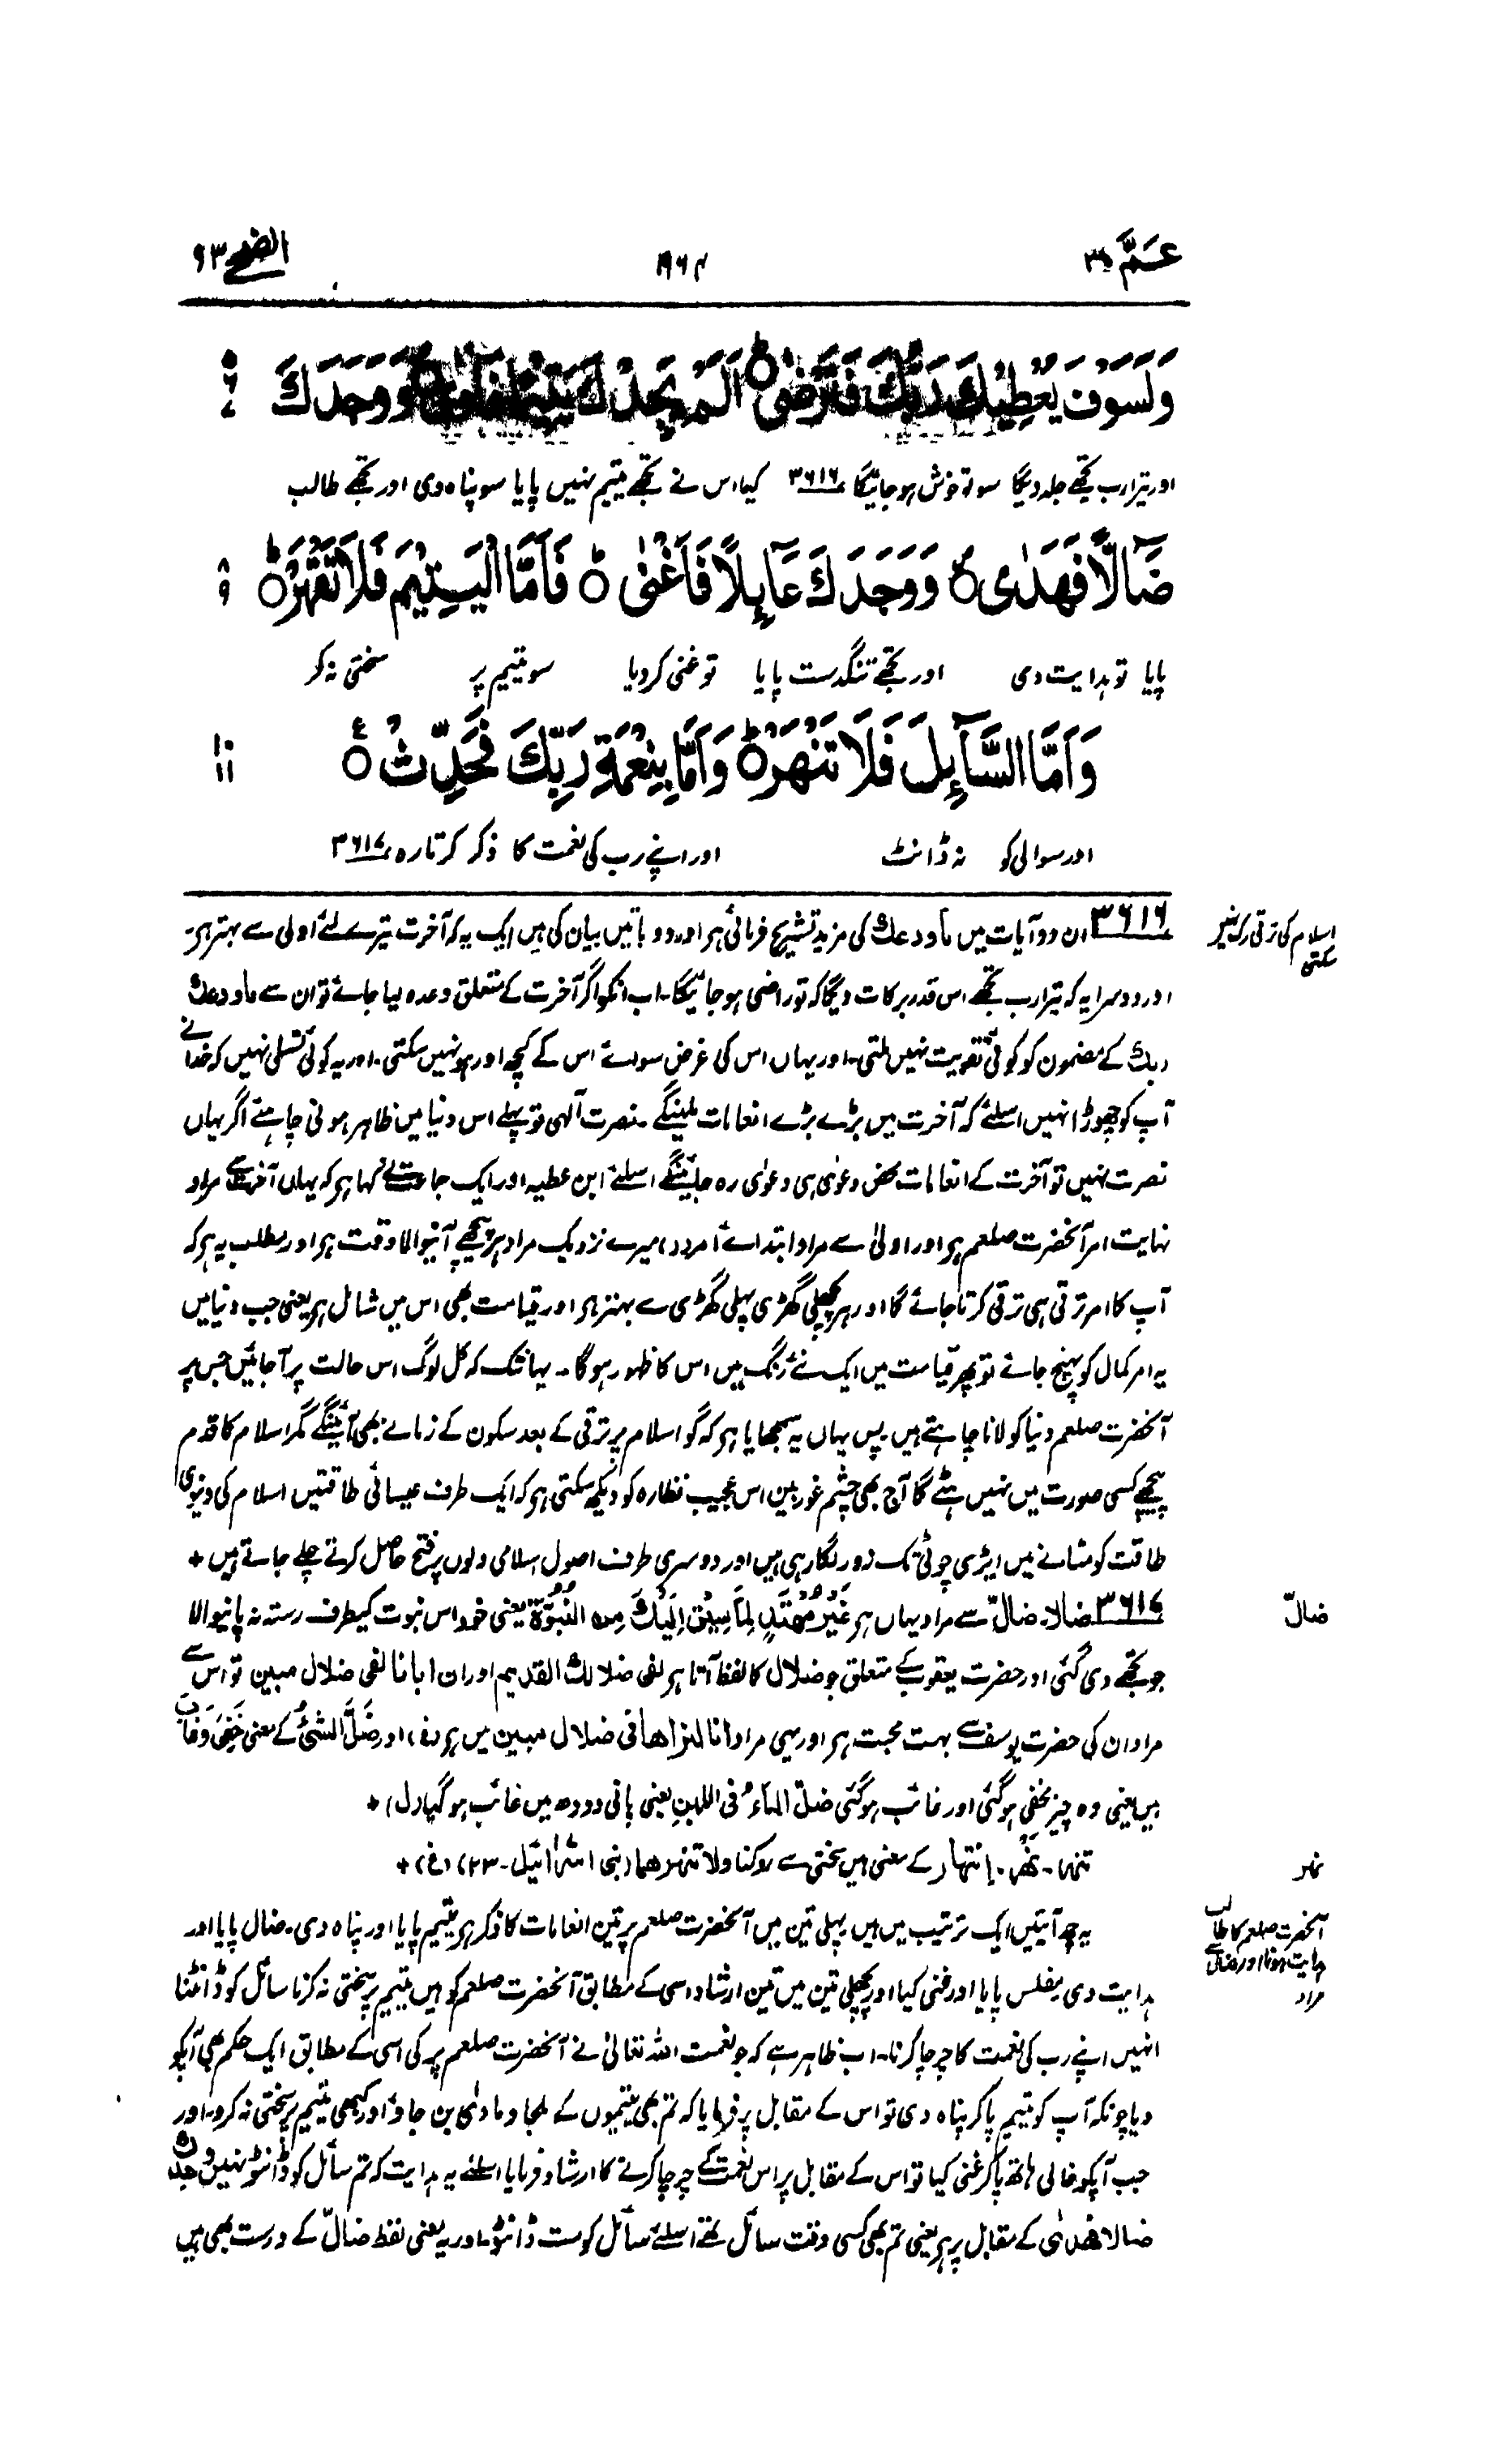 عَمَّ ٣٠
١٩٦٤
الضحی ٩٣
وَلَسَوْفَ يُعْطِيْكَ رَبُّكَ فَتَرْضٰى ۝ اَلَمْ يَجِدْكَ يَتِيْمًا فَاٰوٰى ۝ وَوَجَدَكَ
اور تیرا رب تجھے جلد دیگا سو تو خوش ہو جائیگا ٣٦١٦ کیا اس نے تجھے یتیم نہیں پایا سو پناہ دی اور تجھے طالب
ضَآلًّا فَهَدٰى ۝ وَوَجَدَكَ عَآىِٕلًا فَاَغْنٰى ۝ فَاَمَّا الْيَتِيْمَ فَلَا تَقْهَرْ ۝
٨
٩
پایا تو ہدایت دی اور تجھے تنگدست پایا تو غنی کر دیا سو یتیم پر سختی نہ کر
وَاَمَّا السَّآىِٕلَ فَلَا تَنْهَرْ ۝ وَاَمَّا بِنِعْمَةِ رَبِّكَ فَحَدِّثْ ۝
١٠
١١
اور سوالی کو نہ ڈانٹ اور اپنے رب کی نعمت کا ذکر کرتا رہ ٣٦١٧
٣٦١٦ ان دو آیات میں ماودعك کی مزید تشریح فرمائی ہر اور دو باتیں بیان کی ہیں ایک یہ کہ آخرت تیرے لئے اولی سے بہتر ہر۔
اسلام کی ترقی رک نہیں سکتی
اور دوسرا یہ کہ تیرا رب تجھے اس قدر برکات دیگا کہ تو راضی ہو جائیگا۔ اب انکو اگر آخرت کے متعلق وعدہ لیا جائے تو ان سے ماودعك
ربك کے مضمون کو کوئی تقویت نہیں ملتی۔ اور یہاں اس کی غرض سوائے اس کے کچھ اور ہو نہیں سکتی۔ اور یہ کوئی تسلی نہیں کہ خدا نے
آپ کو چھوڑا نہیں اسلئے کہ آخرت میں بڑے بڑے انعامات ملینگے۔ نصرت آلہی تو پہلے اس دنیا میں ظاہر ہونی چاہئے اگر یہاں
نصرت نہیں تو آخرت کے انعامات محض دعوٰی ہی دعوٰی رہ جائینگے اسلئے ابن عطیہ اور ایک جماعت نے کہا ہر کہ یہاں آخرت سے مراد
نہایت امر آنحضرت صلعم ہر اور اولیٰ سے مراد ابتدائے امر (د) میرے نزدیک مراد ہر پیچھے آنیوالا وقت ہر اور مطلب یہ ہر کہ
آپ کا امر ترقی ہی ترقی کرتا جائے گا اور ہر پچھلی گھڑی پہلی گھڑی سے بہتر ہر اور قیامت بھی اس میں شامل ہر یعنی جب دنیا میں
یہ امر کمال کو پہنچ جائے تو پھر قیامت میں ایک نئے رنگ میں اس کا ظہور ہوگا۔ یہانتک کہ کل لوگ اس حالت پر آجائیں جس پر
آنحضرت صلعم دنیا کو لانا چاہتے ہیں۔ پس یہاں یہ سمجھایا ہر کہ گو اسلام پر ترقی کے بعد سکون کے زمانے بھی آئینگے مگر اسلام کا قدم
پیچھے کسی صورت میں نہیں ہٹے گا آج بھی چشم غور بین اس عجیب نظارہ کو دیکھ سکتی ہر کہ ایک طرف عیسائی طاقتیں اسلام کی دنیوی
طاقت کو مٹانے میں ایڑی چوٹی تک زور لگا رہی ہیں اور دوسری طرف اصول اسلامی دلوں پر فتح حاصل کرتے چلے جاتے ہیں +
٣٦١٧ ضالا۔ ضالّ سے مراد یہاں ہر غَيْرُ مُهْتَدٍ لِمَا سِيْقَ اِلَيْكَ مِنَ النُّبُوَّةِ یعنی خود اس نبوت کیطرف رستہ نہ پانیوالا
ضالّ
جو تجھے دی گئی اور حضرت یعقوب کے متعلق جو ضلال کا لفظ آتا ہر لفی ضلالك القدیم اور ان ابانا لفی ضلال مبین تو اس سے
مراد ان کی حضرت یوسف سے بہت محبت ہر اور یہی مراد انا لنراها فی ضلال مبین میں ہر (غ) اور ضَلَّ الشَّیْءُ کے معنی خَفِیَ وَغَابَ
ہیں یعنی وہ چیز مخفی ہو گئی اور غائب ہو گئی ضلّ الماءُ فی اللبنِ یعنی پانی دودھ میں غائب ہو گیا (ل) +
تنهر۔ نهر۔ انتهار کے معنی ہیں سختی سے روکنا ولا تنهرهما (بنی اسرائیل۔ ٢٣) (غ) +
نهر
یہ چھ آیتیں ایک ترتیب میں ہیں پہلی تین میں آنحضرت صلعم پر تین انعامات کا ذکر ہر یتیم پایا اور پناہ دی۔ ضال پایا اور
آنحضرت صلعم کا طالب ہدایت ہونا اور ضال سے مراد
ہدایت دی مفلس پایا اور غنی کیا اور پچھلی تین میں تین ارشاد اسی کے مطابق آنحضرت صلعم کو ہیں یتیم پر سختی نہ کرنا سائل کو ڈانٹنا
نہیں اپنے رب کی نعمت کا چرچا کرنا۔ اب ظاہر ہے کہ جو نعمت اللہ تعالیٰ نے آنحضرت صلعم پر کی اسی کے مطابق ایک حکم بھی آپکو
دیا چونکہ آپ کو یتیم پا کر پناہ دی تو اس کے مقابل پر فرمایا کہ تم بھی یتیموں کے ملجا و ماویٰ بن جاؤ اور کبھی یتیم پر سختی نہ کرو۔ اور
جب آپکو خالی ہاتھ پا کر غنی کیا تو اس کے مقابل پر اس نعمت کے چرچا کرنے کا ارشاد فرمایا اسلئے یہ ہدایت کہ تم سائل کو ڈانٹو نہیں وجدك
ضالا فهدٰی کے مقابل پر ہر یعنی تم بھی کسی وقت سائل تھے اسلئے سائل کو مت ڈانٹو۔ اور یہ معنی لفظ ضالّ کے درست بھی ہیں